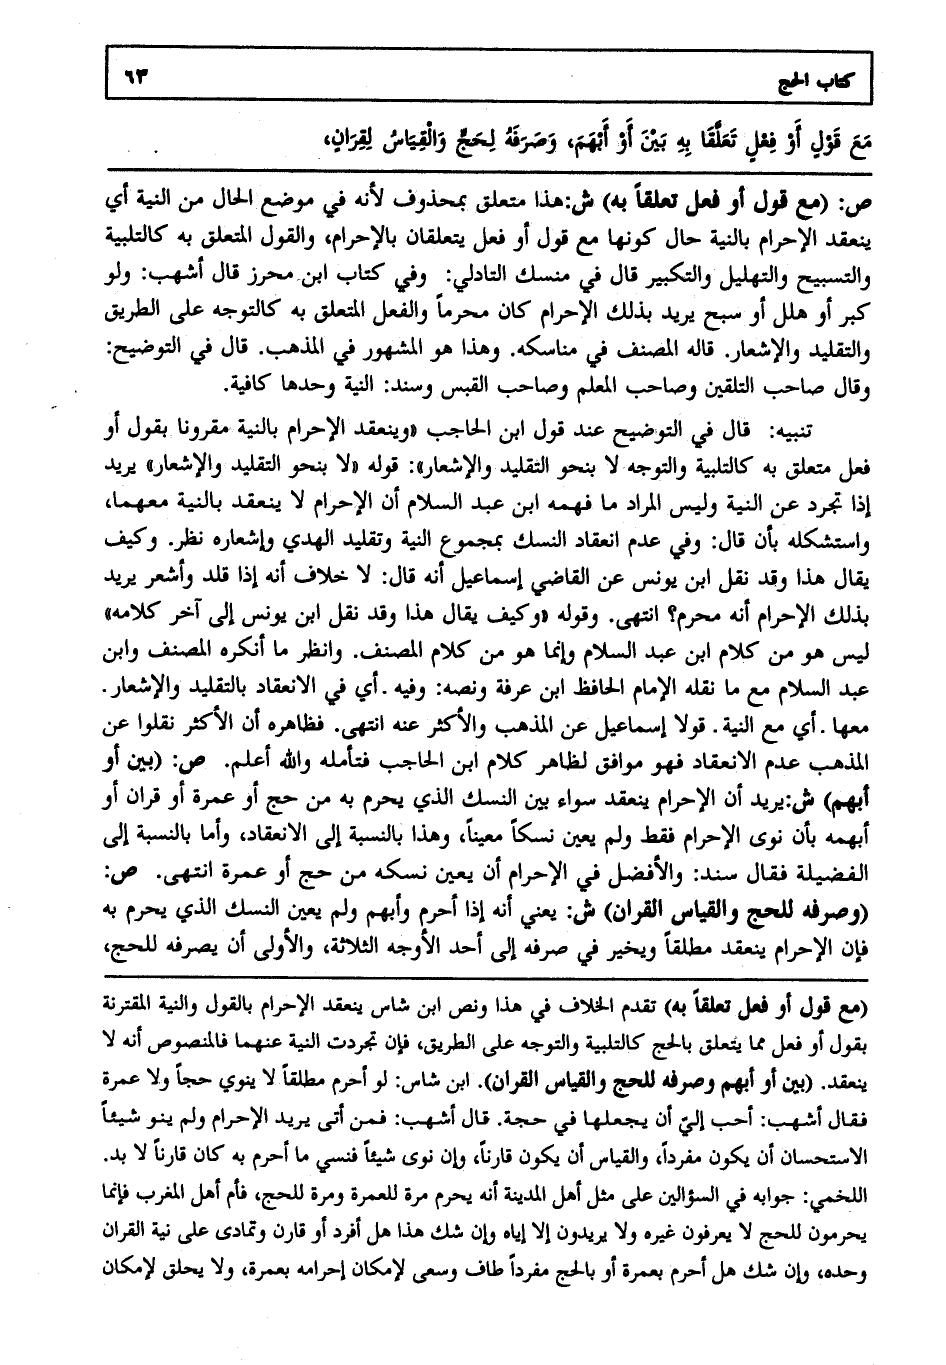 كتاب الحج
٦٣
مَعَ قَوْلٍ أَوْ فِعْلٍ تَعَلَّقَا بِهِ بَيْنَ أَوْ أَبْهَمَ، وَصَرَفَهُ لِحَجٍّ وَالْقِيَاسُ لِقِرَانٍ،
ص: (مع قول أو فعل تعلقاً به) ش:هذا متعلق بمحذوف لأنه في موضع الحال من النية أي
ينعقد الإحرام بالنية حال كونها مع قول أو فعل يتعلقان بالإحرام، والقول المتعلق به كالتلبية
والتسبيح والتهليل والتكبير قال في منسك التادلي: وفي كتاب ابن محرز قال أشهب: ولو
كبر أو هلل أو سبح يريد بذلك الإحرام كان محرماً والفعل المتعلق به كالتوجه على الطريق
والتقليد والإشعار. قاله المصنف في مناسكه. وهذا هو المشهور في المذهب. قال في التوضيح:
وقال صاحب التلقين وصاحب المعلم وصاحب القبس وسند: النية وحدها كافية.
تنبيه: قال في التوضيح عند قول ابن الحاجب «وينعقد الإحرام بالنية مقرونا بقول أو
فعل متعلق به كالتلبية والتوجه لا بنحو التقليد والإشعار»: قوله «لا بنحو التقليد والإشعار» يريد
إذا تجرد عن النية وليس المراد ما فهمه ابن عبد السلام أن الإحرام لا ينعقد بالنية معهما،
واستشكله بأن قال: وفي عدم انعقاد النسك بمجموع النية وتقليد الهدي وإشعاره نظر. وكيف
يقال هذا وقد نقل ابن يونس عن القاضي إسماعيل أنه قال: لا خلاف أنه إذا قلد وأشعر يريد
بذلك الإحرام أنه محرم؟ انتهى. وقوله «وكيف يقال هذا وقد نقل ابن يونس إلى آخر كلامه»
ليس هو من كلام ابن عبد السلام وإنما هو من كلام المصنف. وانظر ما أنكره المصنف وابن
عبد السلام مع ما نقله الإمام الحافظ ابن عرفة ونصه: وفيه ـ أي في الانعقاد بالتقليد والإشعار ـ
معها ـ أي مع النية ـ قولا إسماعيل عن المذهب والأكثر عنه انتهى. فظاهره أن الأكثر نقلوا عن
المذهب عدم الانعقاد فهو موافق لظاهر كلام ابن الحاجب فتأمله والله أعلم. ص: (بين أو
أبهم) ش:يريد أن الإحرام ينعقد سواء بين النسك الذي يحرم به من حج أو عمرة أو قران أو
أبهمه بأن نوى الإحرام فقط ولم يعين نسكاً معيناً، وهذا بالنسبة إلى الانعقاد، وأما بالنسبة إلى
الفضيلة فقال سند: والأفضل في الإحرام أن يعين نسكه من حج أو عمرة انتهى. ص:
(وصرفه للحج والقياس القران) ش: يعني أنه إذا أحرم وأبهم ولم يعين النسك الذي يحرم به
فإن الإحرام ينعقد مطلقاً ويخير في صرفه إلى أحد الأوجه الثلاثة، والأولى أن يصرفه للحج،
(مع قول أو فعل تعلقاً به) تقدم الخلاف في هذا ونص ابن شاس ينعقد الإحرام بالقول والنية المقترنة
بقول أو فعل مما يتعلق بالحج كالتلبية والتوجه على الطريق، فإن تجردت النية عنهما فالمنصوص أنه لا
ينعقد. (بين أو أبهم وصرفه للحج والقياس القران). ابن شاس: لو أحرم مطلقاً لا ينوي حجاً ولا عمرة
فقال أشهب: أحب إليّ أن يجعلها في حجة. قال أشهب: فمن أتى يريد الإحرام ولم ينو شيئاً
الاستحسان أن يكون مفرداً، والقياس أن يكون قارناً، وإن نوى شيئاً فنسي ما أحرم به كان قارناً لا بد.
اللخمي: جوابه في السؤالين على مثل أهل المدينة أنه يحرم مرة للعمرة ومرة للحج، فأم أهل المغرب فإنما
يحرمون للحج لا يعرفون غيره ولا يريدون إلا إياه وإن شك هذا هل أفرد أو قارن وتمادى على نية القران
وحده، وإن شك هل أحرم بعمرة أو بالحج مفرداً طاف وسعى لإمكان إحرامه بعمرة، ولا يحلق لإمكان